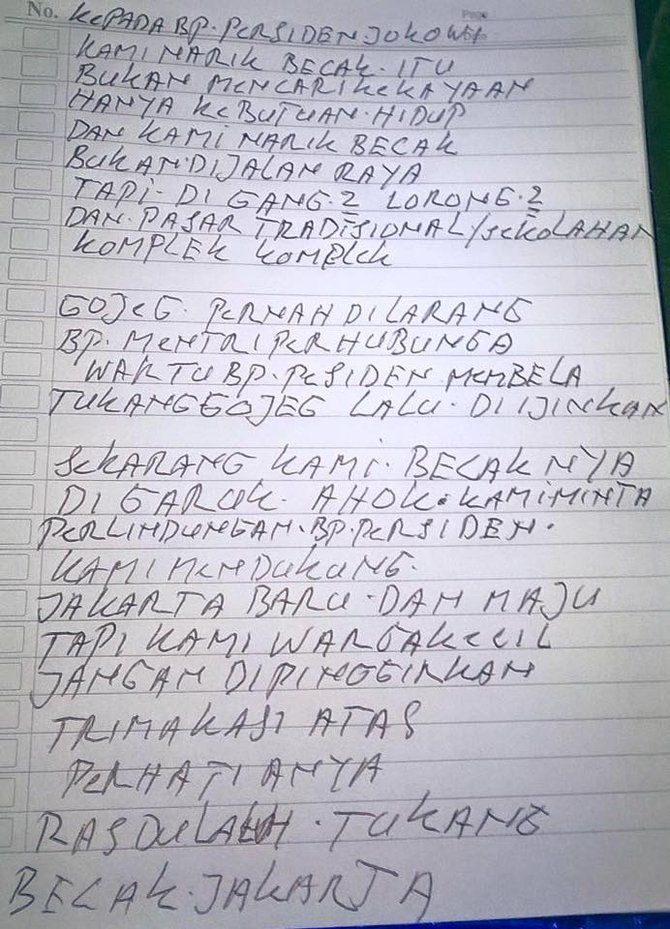 No. Page
KEPADA BP. PERSIDEN JOKOWI
KAMI NARIK BECAK. ITU
BUKAN MENCARI KEKAYAAN
HANYA KEBUTUAN. HIDUP
DAN KAMI NARIK BECAK
BUKAN. DI JALAN RAYA
TAPI. DI GANG.2 LORONG.2
DAN. PASAR TRADISIONAL/SEKOLAHAN
KOMPLEK KOMPLEK
GOJEG. PERNAH DILARANG
BP. MENTRI PERHUBUNGA
WAKTU BP. PESIDEN MEMBELA
TUKANG GOJEG LALU. DI IJINKAN
SEKARANG KAMI. BECAKNYA
DI GARUK. AHOK. KAMI MINTA
PERLINDUNGAN. BP. PERSIDEN.
KAMI MENDUKUNG.
JAKARTA BARU. DAN MAJU
TAPI KAMI WARGA KECIL
JANGAN DIPINGGIRKAN
TRIMAKASI ATAS
PERHATIANYA
RASDULAH. TUKANG
BECAK. JAKARTA